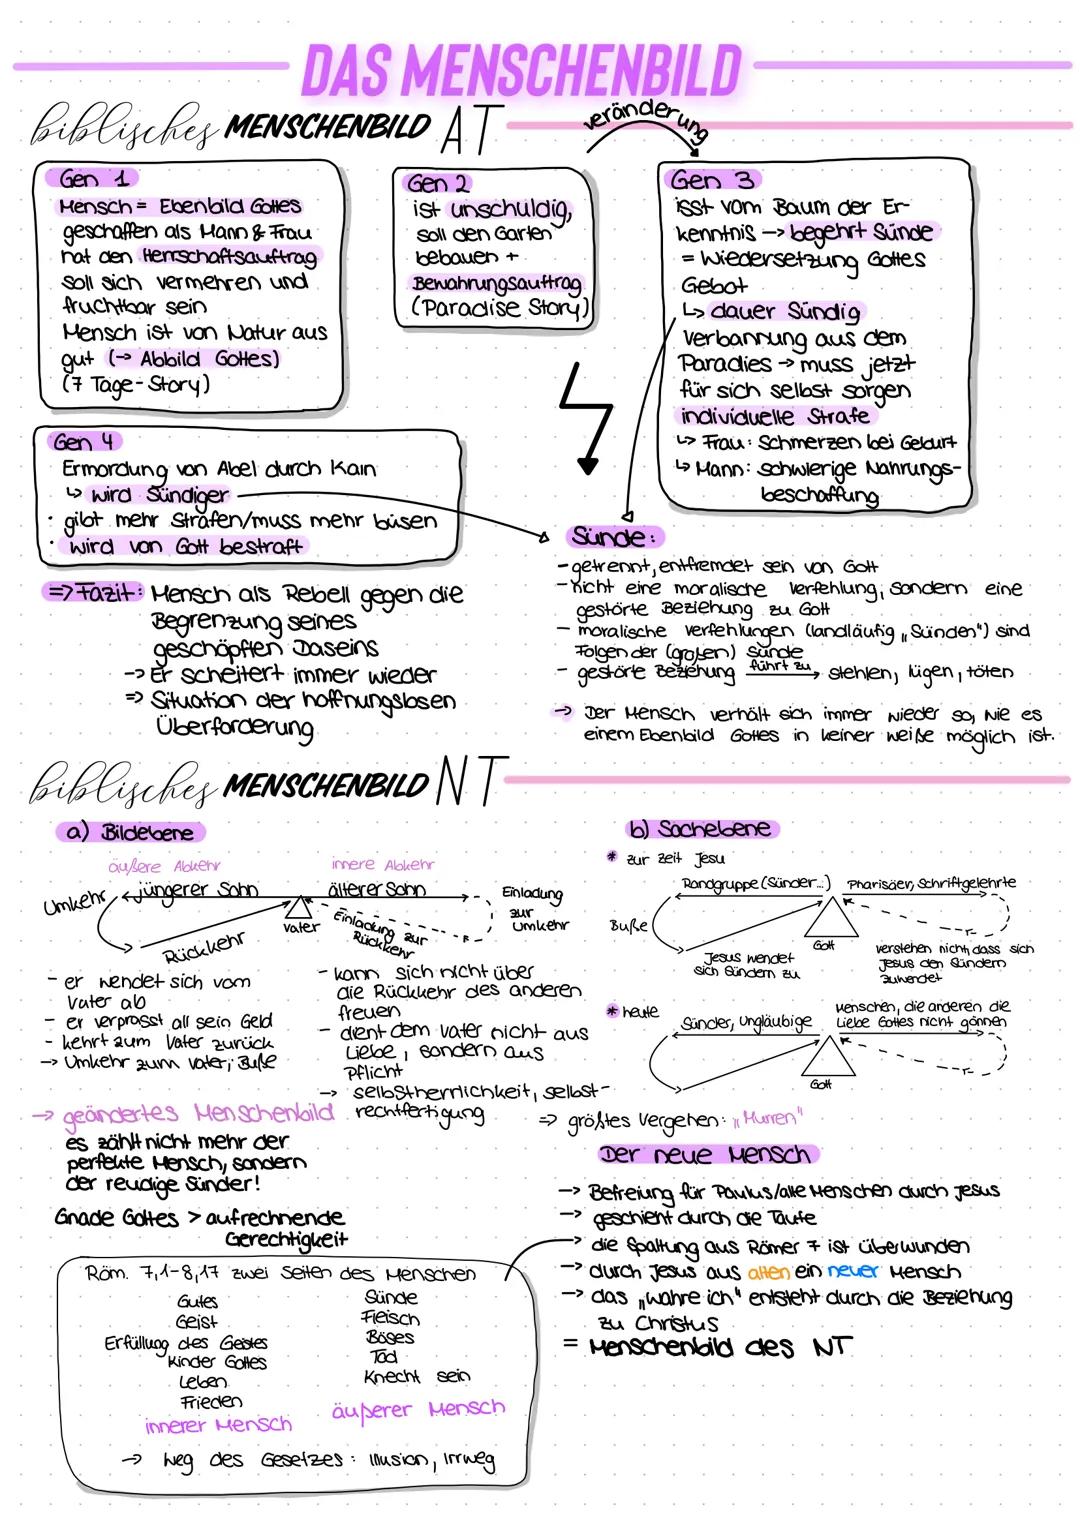 DAS MENSCHENBILD
biblisches MENSCHENBILD AT
veränderung
Gen 1
Mensch = Ebenbild Gottes
geschaffen als Mann & Frau
hat den Herrschaftsauftrag
soll sich vermehren und
fruchtbar sein
Mensch ist von Natur aus
gut (→ Abbild Gottes)
(7 Tage-Story)
Gen 2
ist unschuldig,
soll den Garten
bebauen +
Bewahrungsauftrag
(Paradise Story)
Gen 3
isst vom Baum der Er-
kenntnis → begehrt Sünde
= Wiedersetzung Gottes
Gebot
↳ dauer Sündig
Verbannung aus dem
Paradies → muss jetzt
für sich selbst sorgen
individuelle Strafe
↳ Frau: Schmerzen bei Geburt
↳ Mann: schwierige Nahrungs-
beschaffung
Gen 4
Ermordung von Abel durch Kain
↳ wird Sündiger
· gibt mehr Strafen/muss mehr büsen
· wird von Gott bestraft
=> Fazit: Mensch als Rebell gegen die
Begrenzung seines
geschöpften Daseins
-> Er scheitert immer wieder
=> Situation der hoffnungslosen
Überforderung
Sünde:
- getrennt, entfremdet sein von Gott
- nicht eine moralische Verfehlung, sondern eine
gestörte Beziehung zu Gott
- moralische verfehlungen (landläufig „Sünden") sind
Folgen der (großen) Sünde
- gestörte Beziehung führt zu → stehlen, lügen, töten
→ Der Mensch verhält sich immer wieder so, wie es
einem Ebenbild Gottes in keiner weiße möglich ist.
biblisches MENSCHENBILD NT
a) Bildebene
äußere Abkehr
innere Abkehr
Umkehr
jüngerer Sohn
älterer Sohn
Einladung
zur
Umkehr
Vater
Einladung zur
Rückkehr
Rückkehr
- er wendet sich vom
Vater ab
- er verprasst all sein Geld
- kehrt zum Vater zurück
-> Umkehr zum Vater; Buße
- kann sich nicht über
die Rückkehr des anderen
freuen
- dient dem Vater nicht aus
Liebe, sondern aus
Pflicht
→ selbstherrlichkeit, selbst-
rechtfertigung
→ geändertes Menschenbild
es zählt nicht mehr der
perfekte Mensch, sondern
der reudige Sünder!
Gnade Gottes > aufrechnende
Gerechtigkeit
b) Sachebene
* zur zeit Jesu
Randgruppe (Sünder...)
Pharisäer, Schriftgelehrte
Buße
Gott
Jesus wendet
sich Sündern zu
verstehen nicht, dass sich
Jesus den Sündern
zuwendet
* heute
Sünder, Ungläubige
Menschen, die anderen die
Liebe Gottes nicht gönnen
Gott
=> größtes Vergehen: „Murren"
Der neue Mensch
-> Befreiung für Paulus/alle Menschen durch Jesus
-> geschieht durch die Taufe
-> die Spaltung aus Römer 7 ist überwunden
-> durch Jesus aus alten ein neuer Mensch
-> das „wahre ich" entsteht durch die Beziehung
zu Christus
= Menschenbild des NT
Röm. 7,1-8,17 zwei Seiten des Menschen
Gutes
Geist
Erfüllung des Geistes
Kinder Gottes
Leben
Frieden
innerer Mensch
Sünde
Fleisch
Böses
Tod
Knecht sein
äußerer Mensch
→ Weg des Gesetzes: Illusion, Irrweg